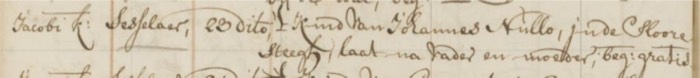 Jacobi k: Sesselaer, 23 dito, 1 kind van Johannes Nullo, in de Moore
steegh, laat na vader en moeder, beg: gratis